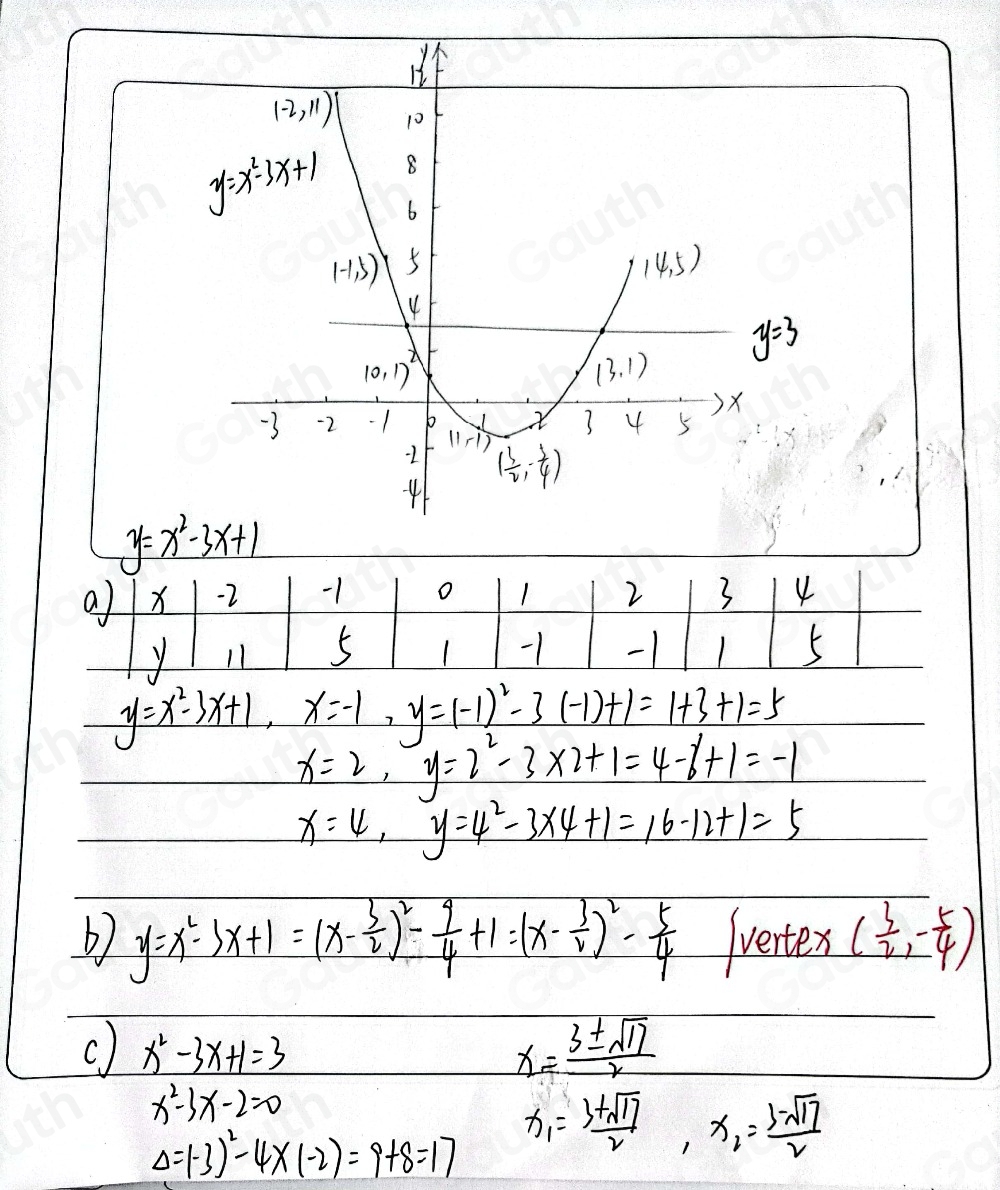 y
12
(-2,11)
10
y=x²-3x+1
8
6
(-1,5) 5 (4,5)
4
y=3
2
(0,1) (3,1)
-3 -2 -1 0 1 2 3 4 5 x
(1,-1)
-2
(3/2,-5/4)
-4
y=x²-3x+1
a) x -2 -1 0 1 2 3 4
y 11 5 1 -1 -1 1 5
y=x²-3x+1, x=-1, y=(-1)²-3(-1)+1=1+3+1=5
x=2, y=2²-3×2+1=4-6+1=-1
x=4, y=4²-3×4+1=16-12+1=5
b) y=x²-3x+1=(x-3/2)²-9/4+1=(x-3/2)²-5/4 vertex (3/2,-5/4)
c) x²-3x+1=3 x=(3±√17)/2
x²-3x-2=0 x₁=(3+√17)/2, x₂=(3-√17)/2
Δ=(-3)²-4×(-2)=9+8=17